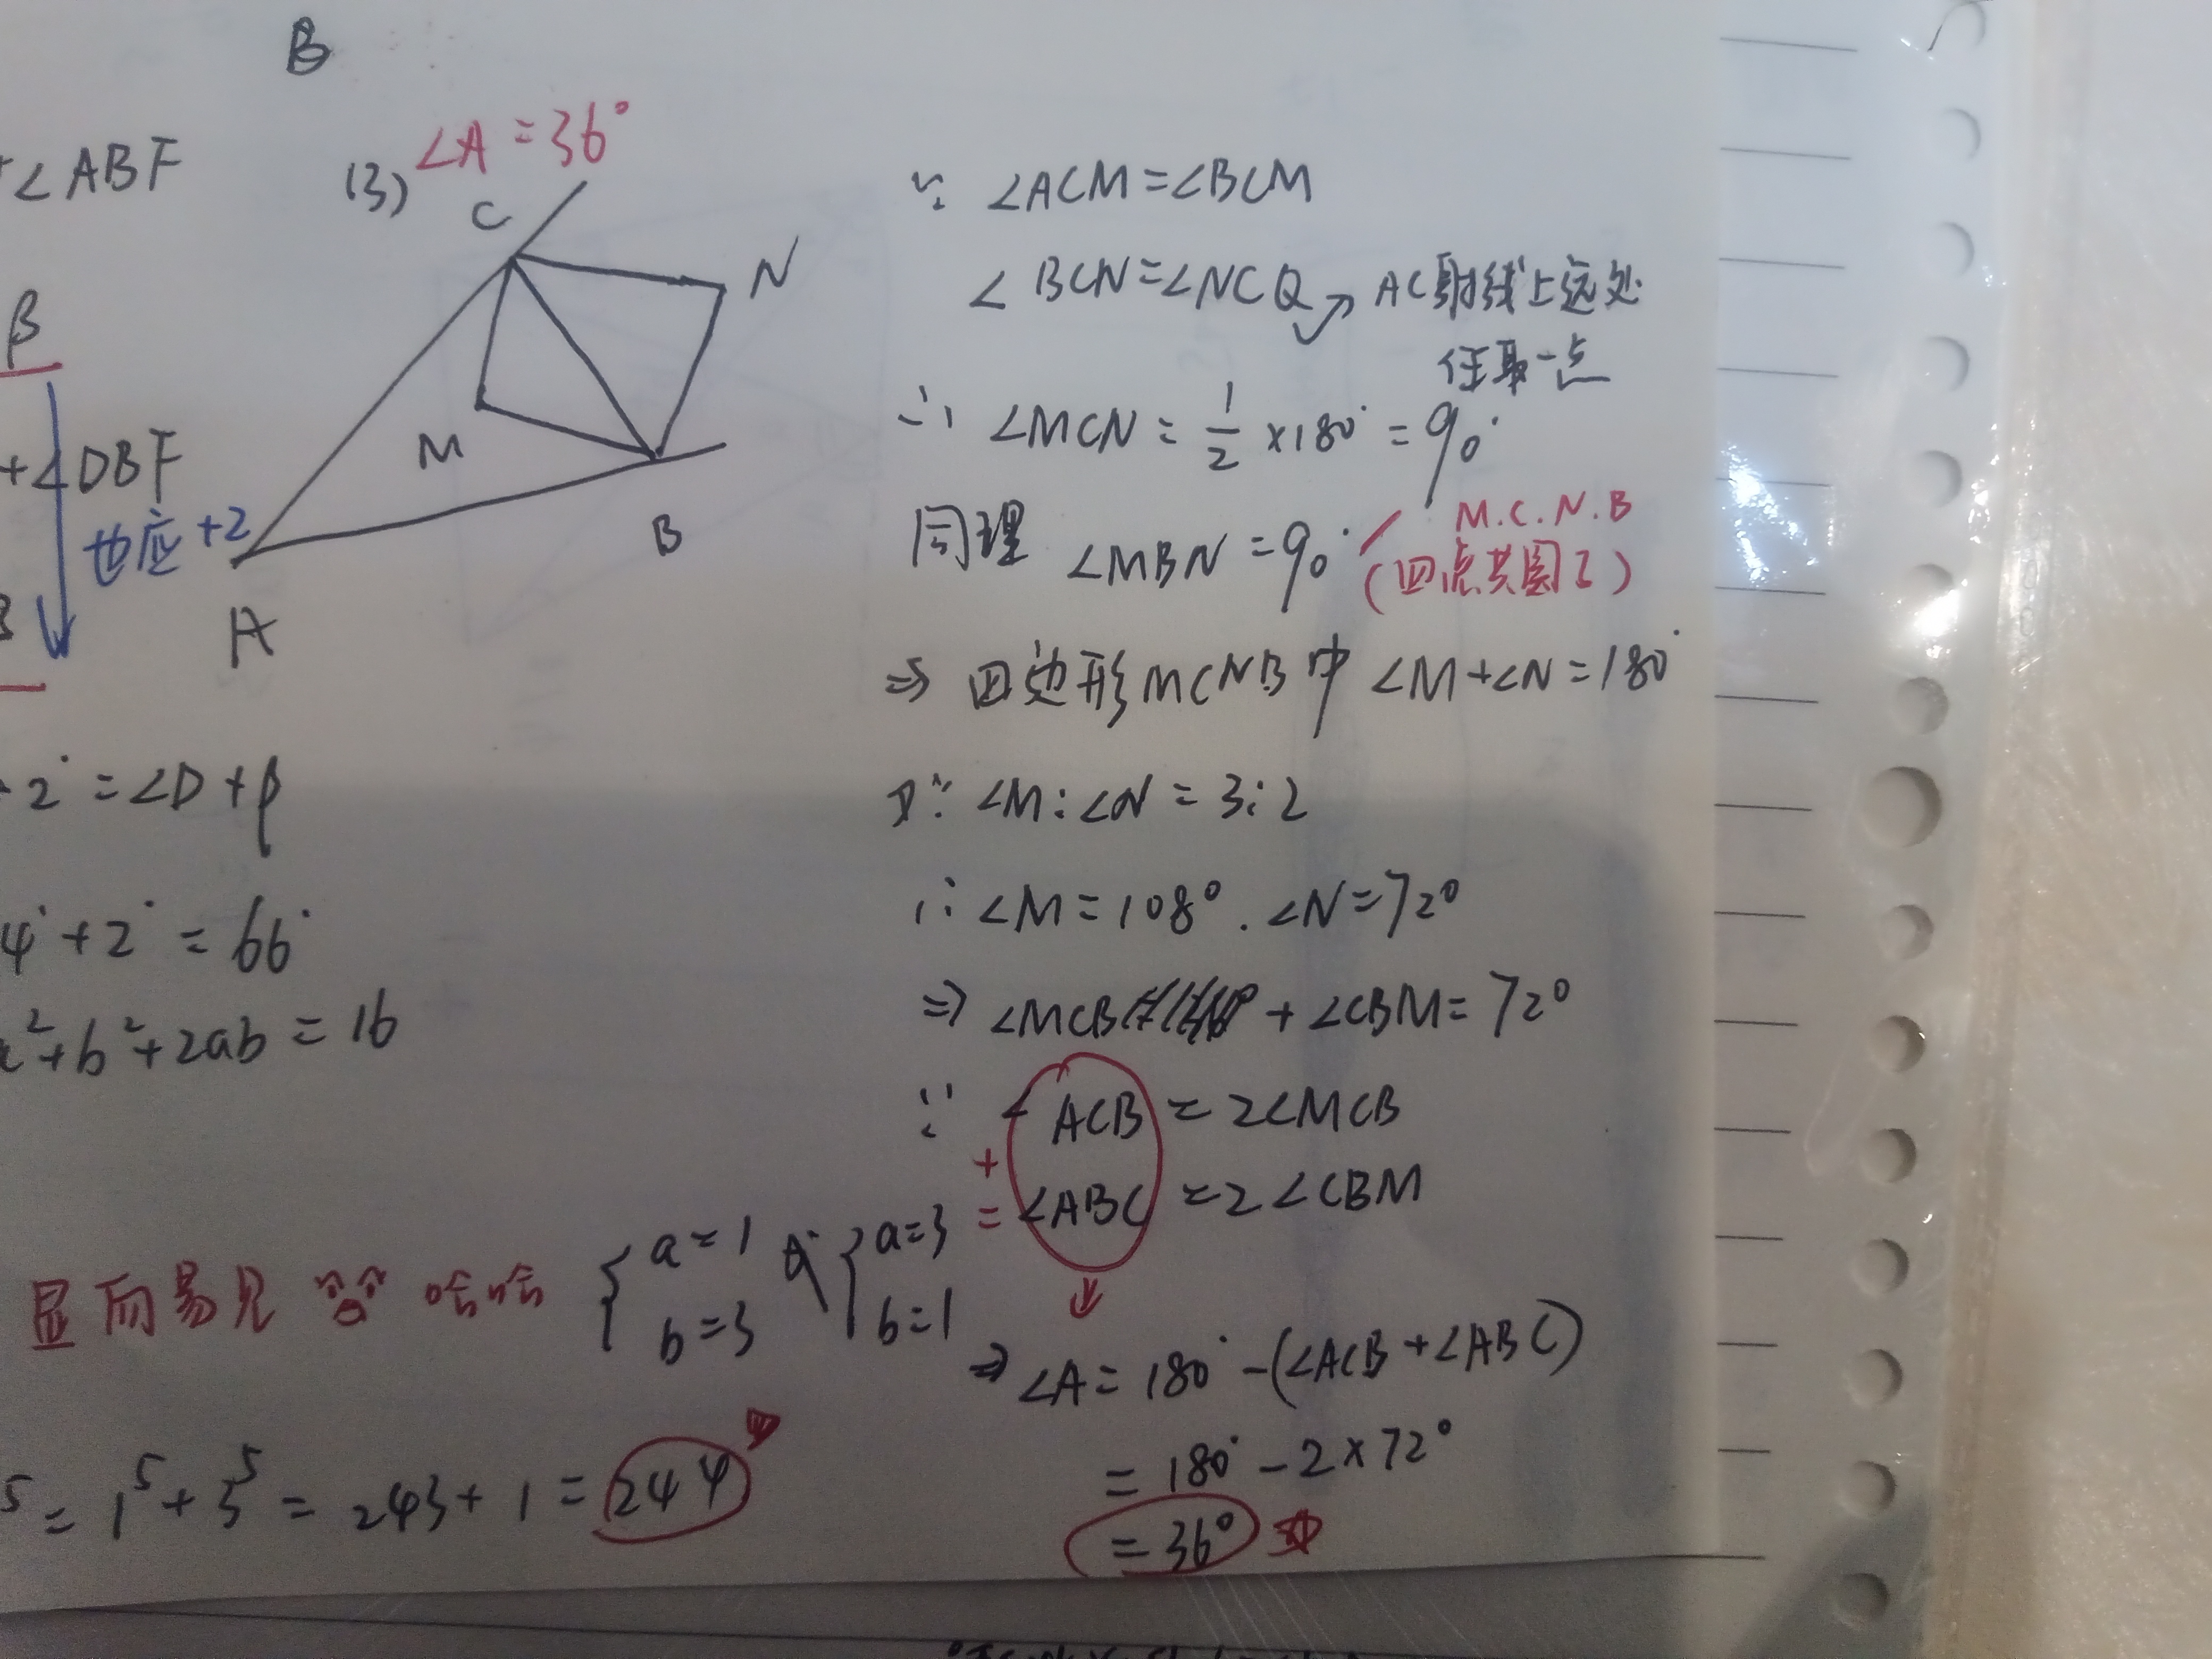 B
∠ABF
β
+∠DBF
也应+2
2° = ∠D + β
4° + 2° = 66°
²+b²+2ab = 16
显而易见 哈哈
{ a=1 b=3 或 { a=3 b=1
5 = 1⁵ + 3⁵ = 243 + 1 = 244
(3) ∠A = 36°
C
N
M
B
A
∵ ∠ACM = ∠BCM
∠BCN = ∠NCQ → AC射线上远处
任取一点
∴ ∠MCN = 1/2 × 180° = 90°
同理 ∠MBN = 90°
M.C.N.B
(四点共圆了)
⇒ 四边形MCNB中 ∠M+∠N = 180°
又∵ ∠M:∠N = 3:2
∴ ∠M = 108°. ∠N = 72°
⇒ ∠MCB + ∠CBM = 72°
∵ ∠ACB = 2∠MCB
+
= ∠ABC = 2∠CBM
⇒ ∠A = 180° - (∠ACB + ∠ABC)
= 180° - 2 × 72°
= 36°